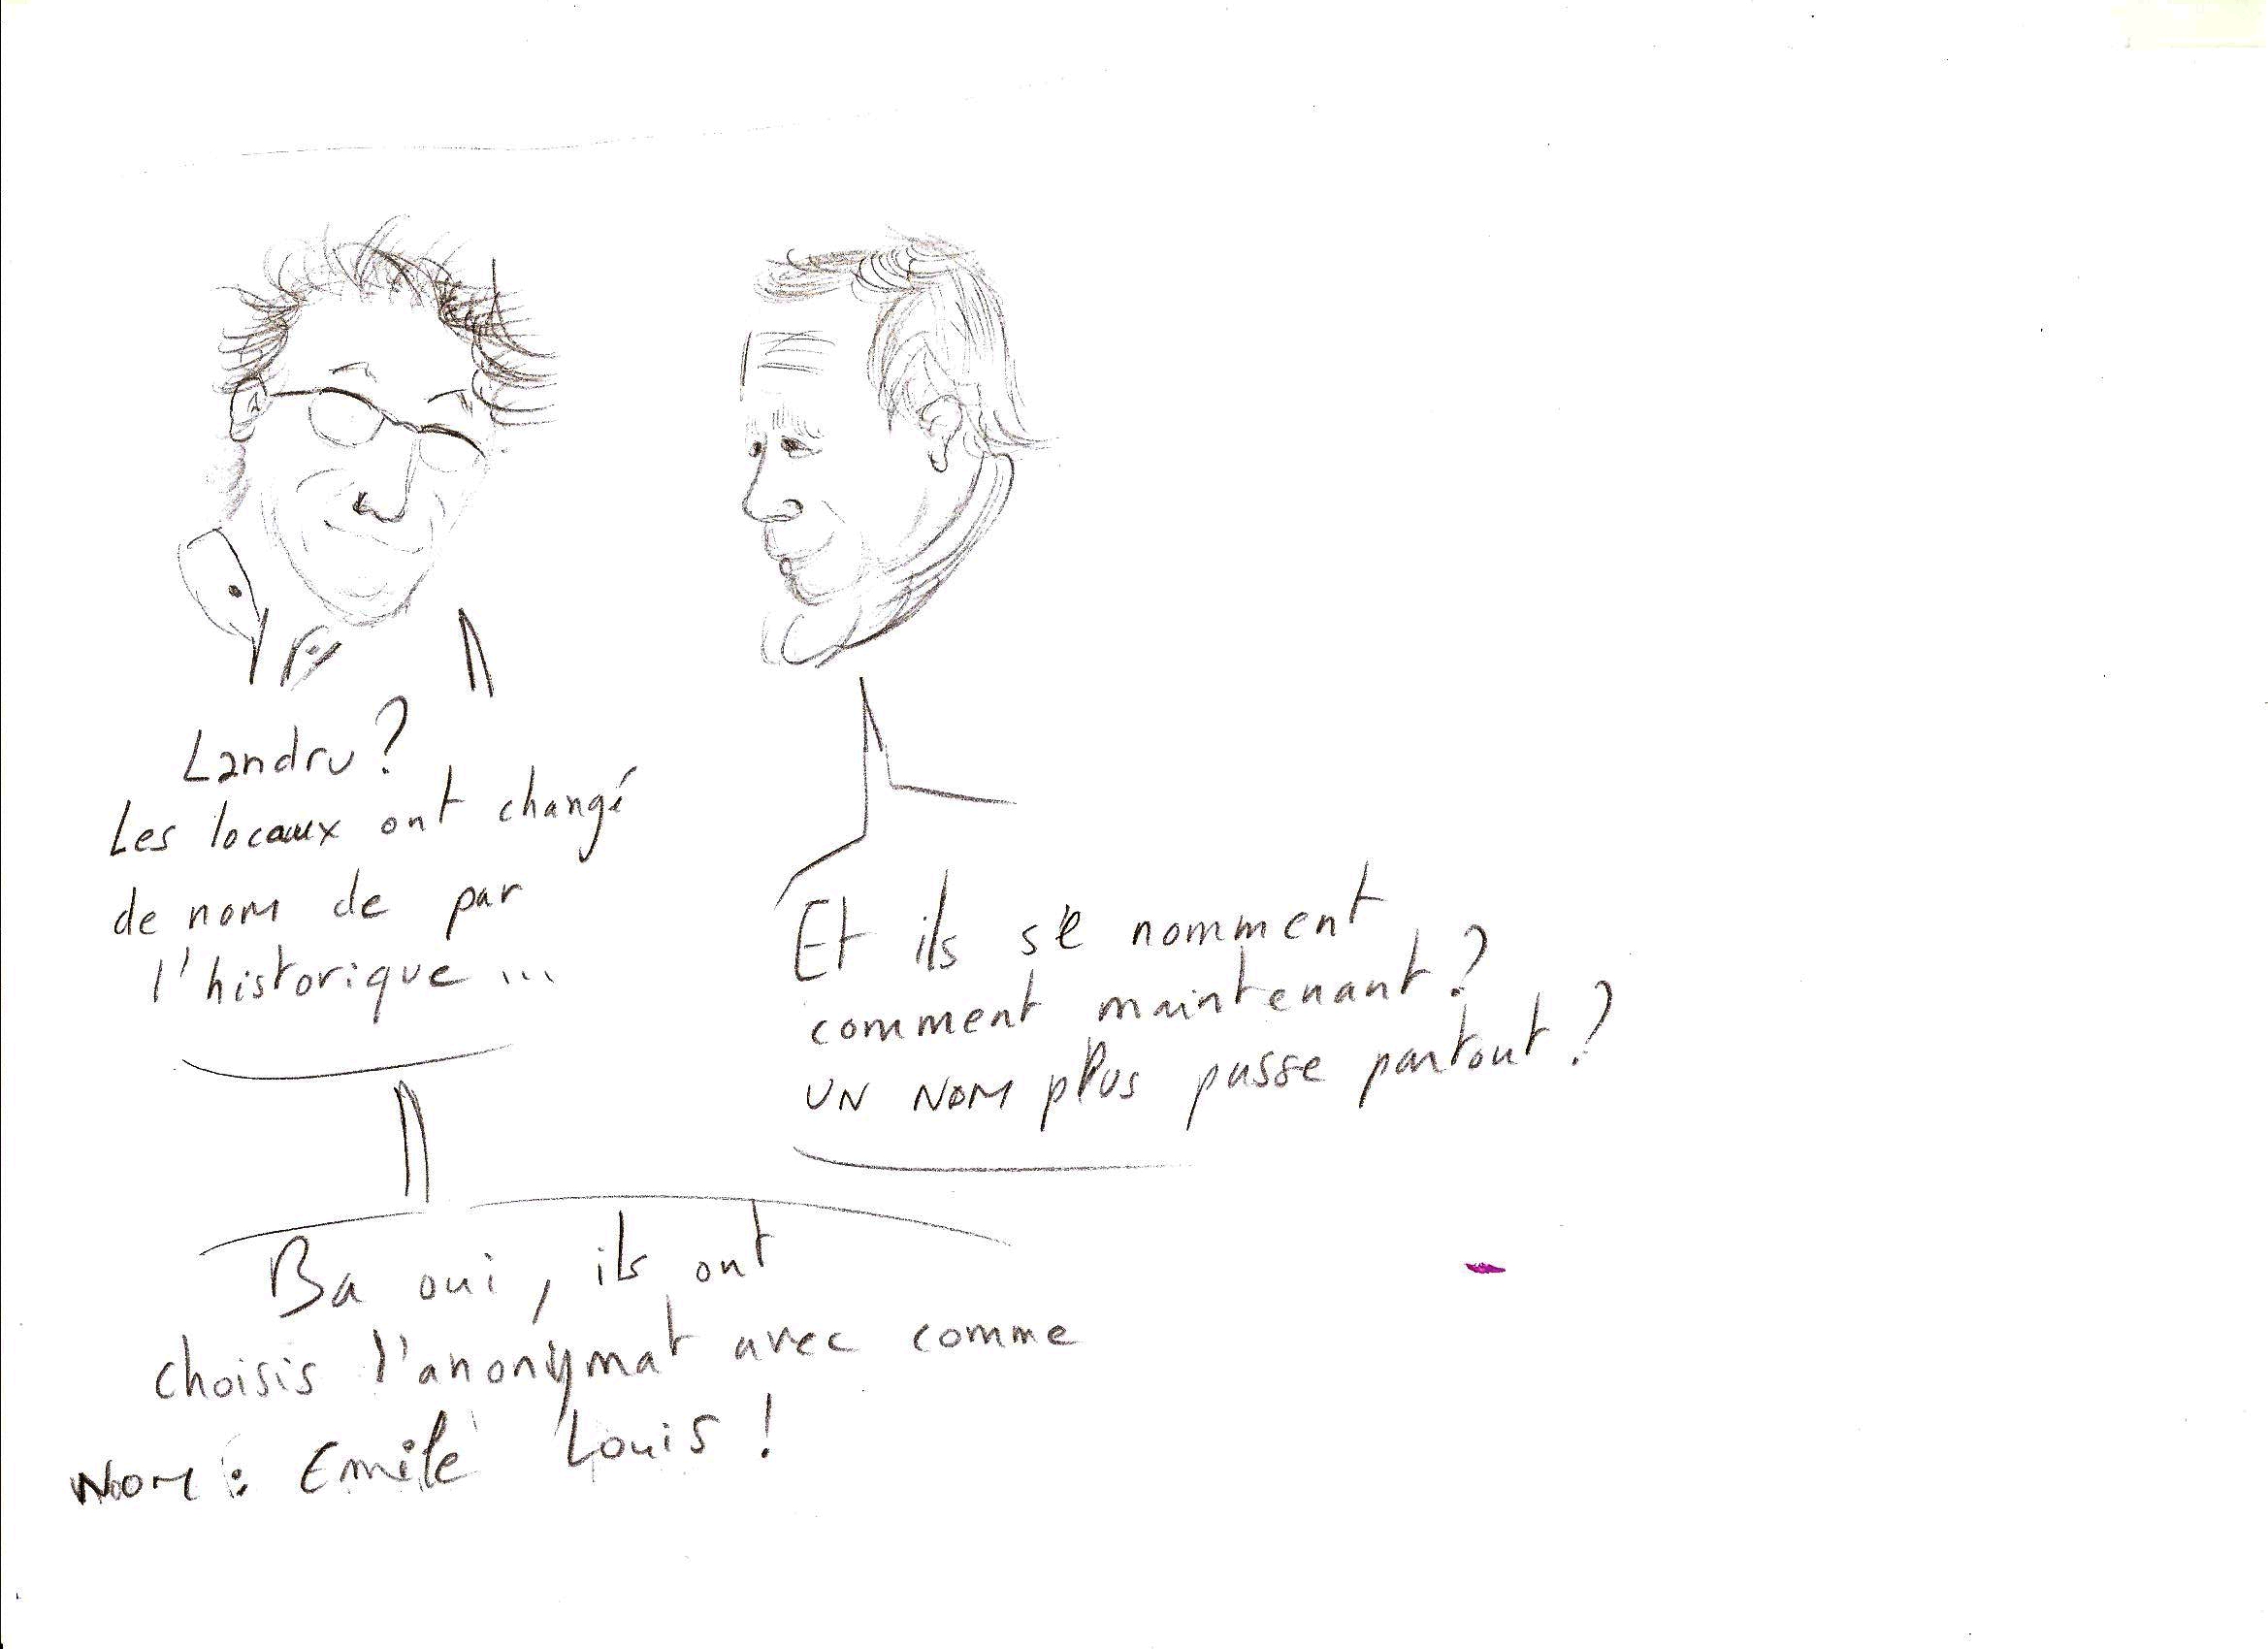 Landru?
Les locaux ont changé
de nom de par
l'historique ...
Et ils se nomment
comment maintenant?
UN NOM plus passe partout?
Ba oui, ils ont
choisis l'anonymat avec comme
NOM : Emile Louis !